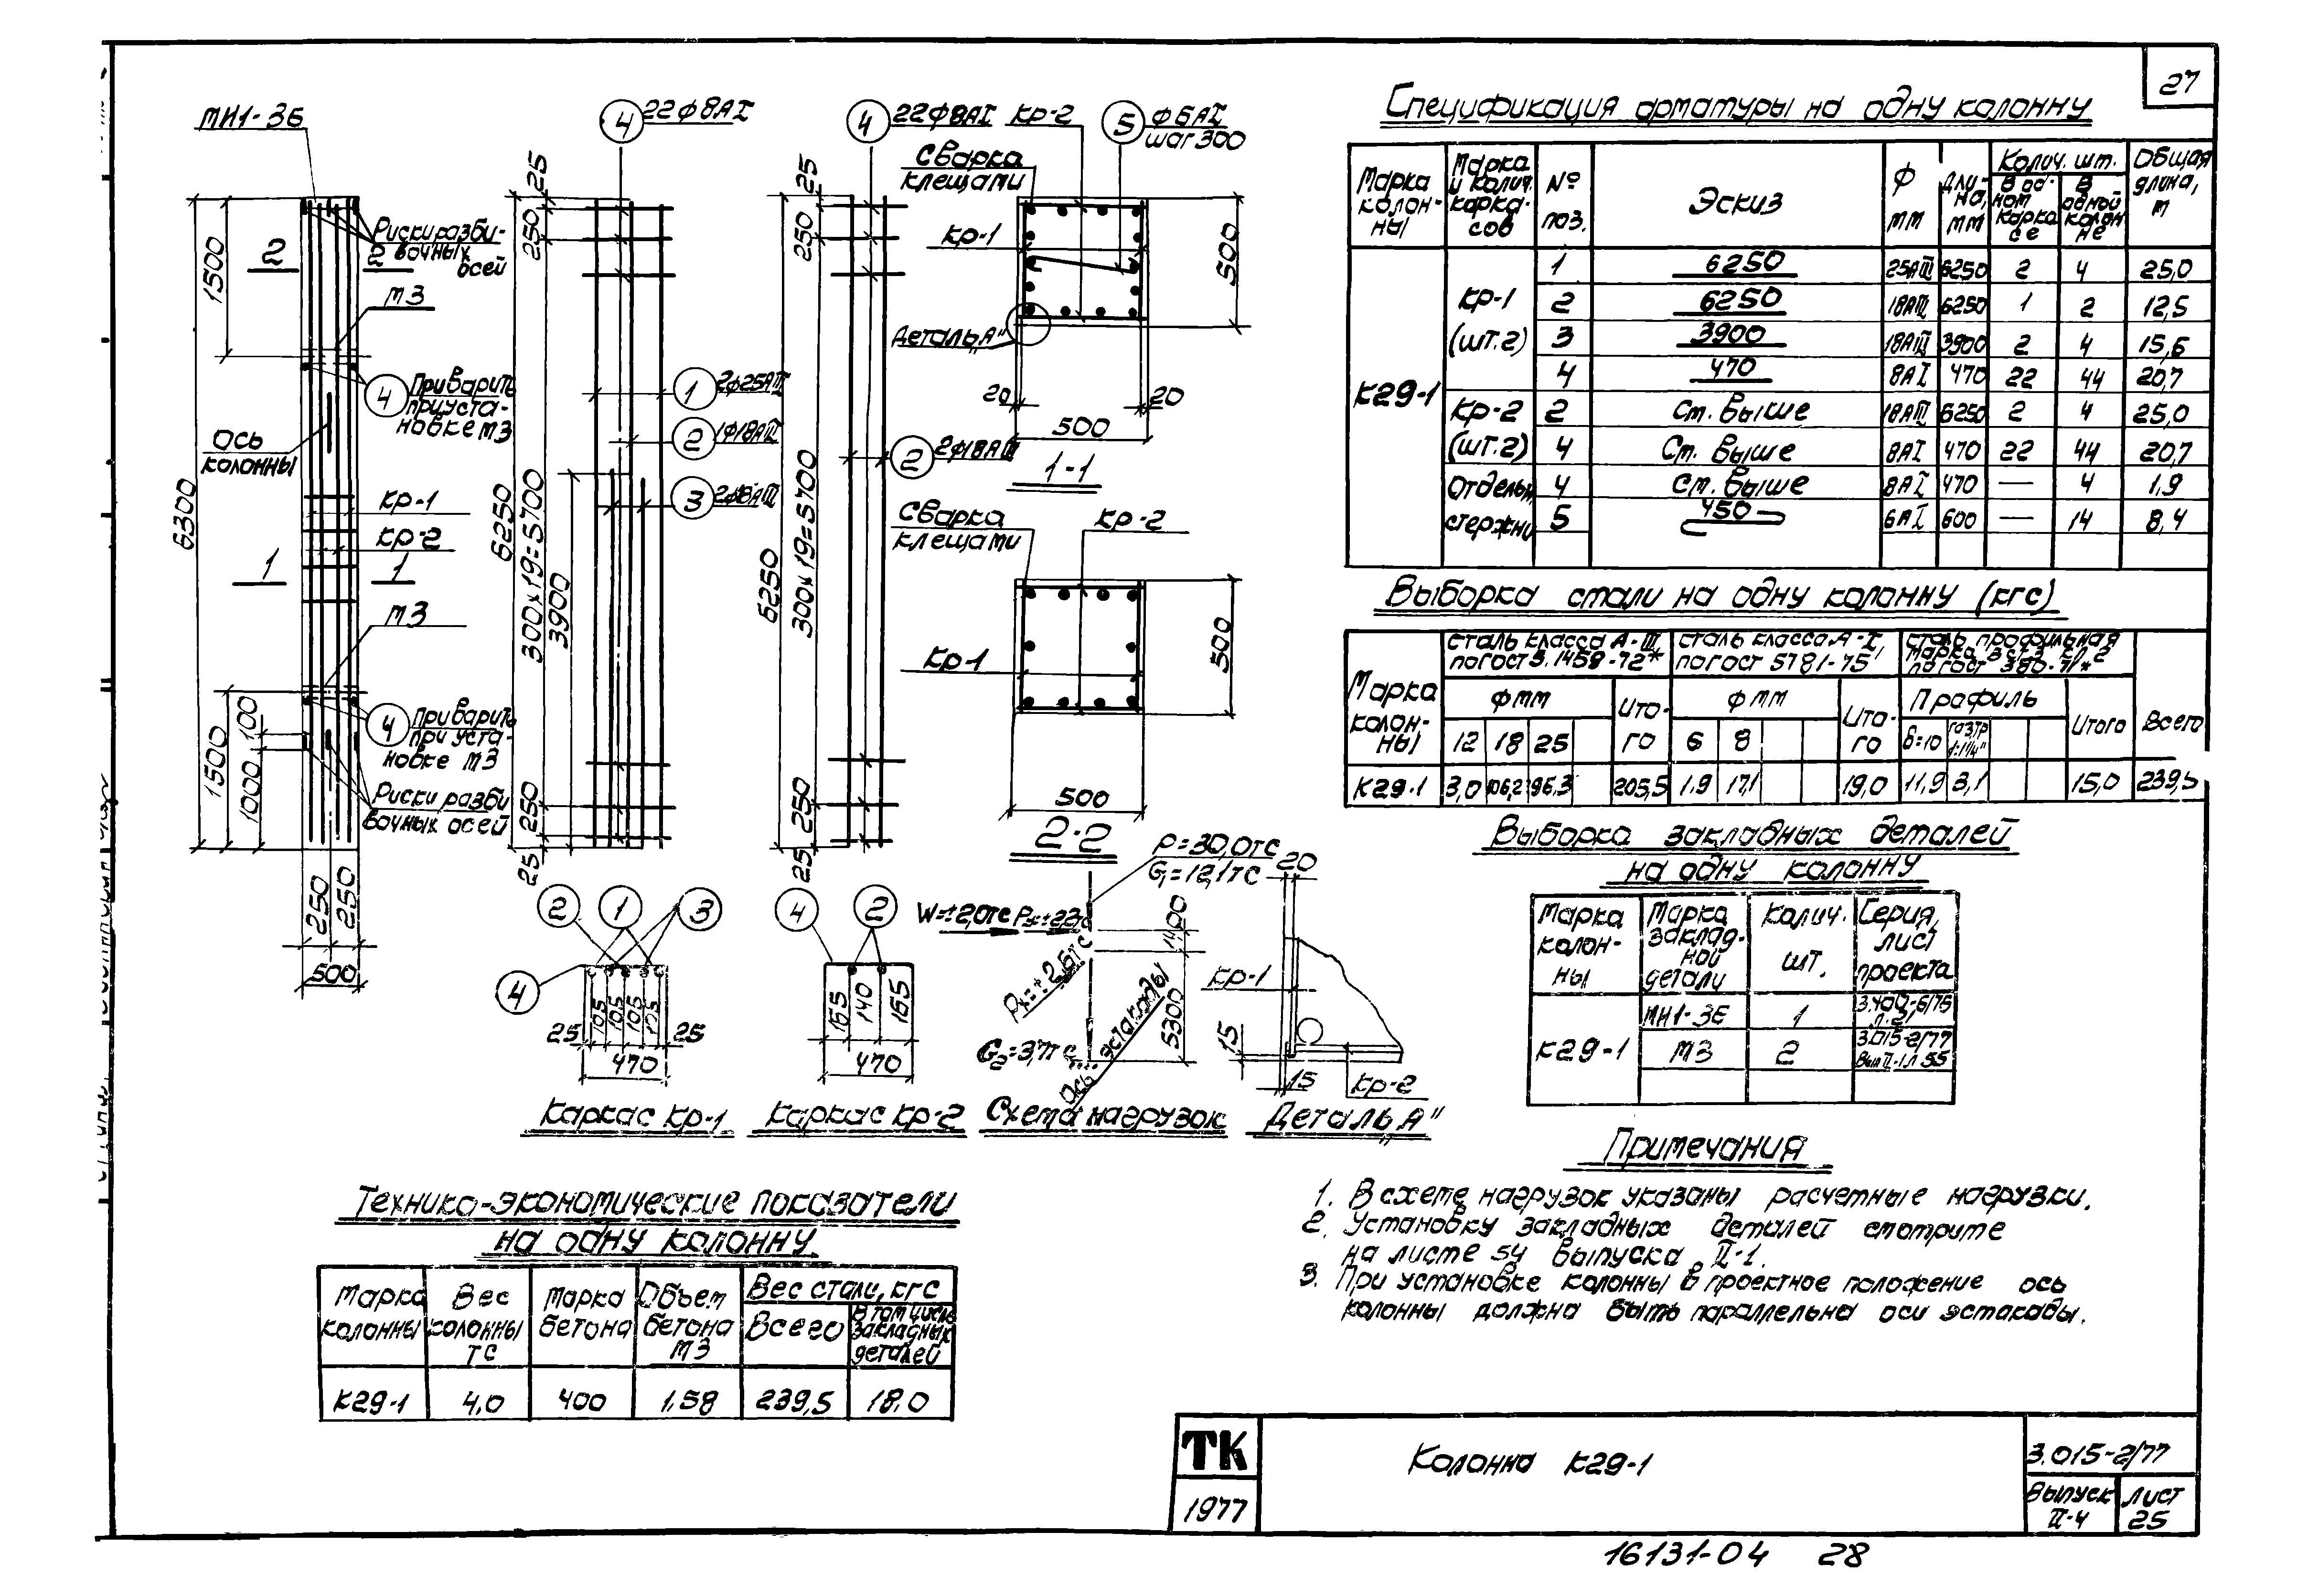 27
МН1-3б
1500
2
2
Риски разби-
вочных
осей
М3
4
Приварить
при уста-
новке М3
Ось
колонны
6300
Кр-1
Кр-2
1
1
М3
4
Приварить
при уста-
новке М3
1500
1000
100
Риски разби
вочных осей
250
250
500
4
22ф8АI
25
250
6250
300х19=5700
3900
1
2ф25АIII
2
1ф18АIII
3
2ф18АIII
250
25
2
1
3
4
25
105
105
105
105
25
470
Каркас Кр-1
4
22ф8АI
25
250
6250
300х19=5700
2
2ф18АIII
250
25
4
2
165
140
165
470
Каркас Кр-2
Кр-2
5
ф6АI
шаг 300
Сварка
клещами
Кр-1
500
Деталь „А"
20
20
500
1-1
Сварка
клещами
Кр-2
Кр-1
500
500
2-2
P=30,0тс
G₁=12,1тс
W=±2,0тс
Pх=±2,6тс
G₂=3,7тс
1400
5300
Ось эстакады
Схема нагрузок
20
Кр-1
15
15
Кр-2
Деталь „А"
Спецификация арматуры на одну колонну
Марка колон-ны Марка и колич. карка-сов № поз. Эскиз ф мм Дли-на, мм Колич. шт. В од-ном каркасе В одной колонне Общая длина, м
К29-1 Кр-1 (шт.2) 1 6250 25АIII 6250 2 4 25,0
2 6250 18АIII 6250 1 2 12,5
3 3900 18АIII 3900 2 4 15,6
4 470 8АI 470 22 44 20,7
Кр-2 (шт.2) 2 См. выше 18АIII 6250 2 4 25,0
4 См. выше 8АI 470 22 44 20,7
Отдельн. стержни 4 См. выше 8АI 470 — 4 1,9
5 450 6АI 600 — 14 8,4
Выборка стали на одну колонну (кгс)
Марка колон-ны Сталь класса А-III по ГОСТ 5.1459-72* Сталь класса А-I по ГОСТ 5781-75 Сталь профильная марка ВСт3 кп 2 по ГОСТ 380-71* Всего
ф мм Ито-го ф мм Ито-го Профиль Итого
12 18 25 6 8 δ=10
К29-1 3,0 106,2 96,3 205,5 1.9 17,1 19,0 11,9 3,1 15,0 239,5
Выборка закладных деталей
на одну колонну
Марка колон-ны Марка заклад-ной детали Колич. шт. Серия, лист проекта
К29-1 МН1-3б 1 3.400-6/76
М3 2 3.015-2/77 Вып II-1 л. 55
Примечания
1. В схеме нагрузок указаны расчетные нагрузки.
2. Установку закладных деталей смотрите
на листе 54 выпуска II-1.
3. При установке колонны в проектное положение ось
колонны должна быть параллельна оси эстакады.
Технико-экономические показатели
на одну колонну
Марка колонны Вес колонны ТС Марка бетона Объем бетона М3 Вес стали, кгс
Всего В том числе закладных деталей
К29-1 4,0 400 1,58 239,5 18,0
ТК
1977
Колонна К29-1
3.015-2/77
Выпуск
II-4
Лист
25
16131-04 28